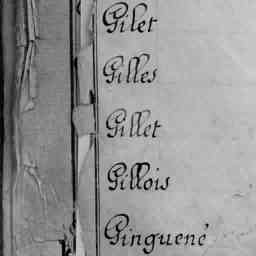 Gilet
Gilles
Gillet
Gillois
Ginguené